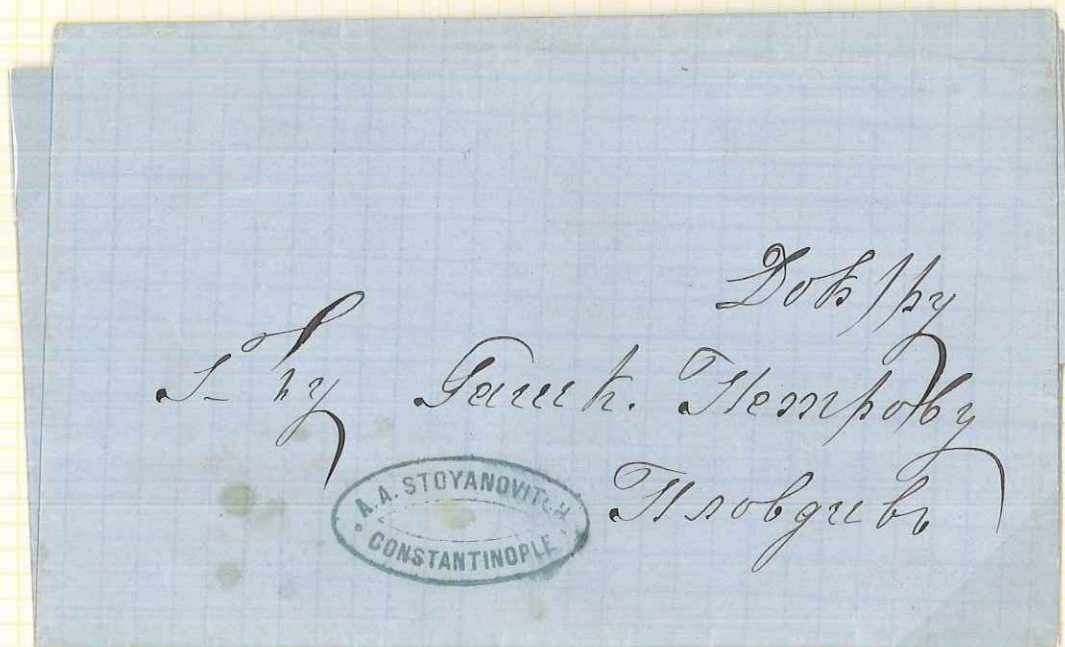 Док/ру
Г-ну Рашк. Петрову
Пловдивъ
A. A. STOYANOVITCH
CONSTANTINOPLE